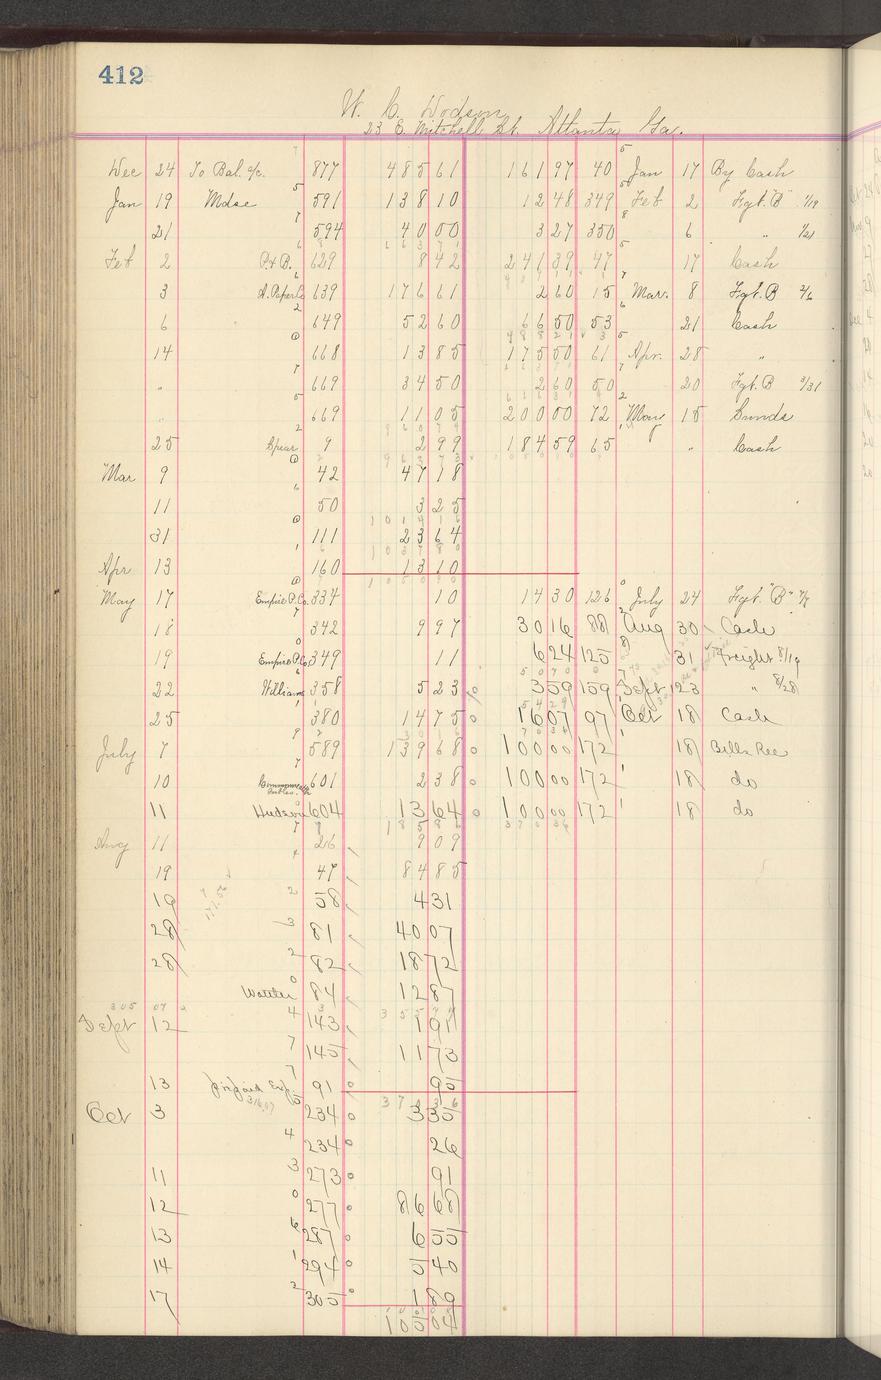 412
W. C. Wodson
23 E. Mitchell St. Atlanta Ga.
Dec 24 To Bal. a/c. 877 485 61 161 97 40 Jan 17 By Cash
Jan 19 Mdse 591 138 10 12 48 349 Feb 2 Fgt. "B" 1/19
21 594 40 00 3 27 350 6 " 1/21
Feb 2 P. & B. 629 8 42 241 39 47 17 Cash
3 A. Paper Co 639 176 61 2 60 15 Mar. 8 Fgt. B 2/6
6 649 52 60 66 50 53 21 Cash
14 668 13 85 175 50 61 Apr. 28 "
" 669 34 50 2 60 50 20 Fgt. B 3/31
" 669 11 05 200 00 72 May 15 Sunds
25 Spear 9 2 99 184 59 65 " Cash
Mar 9 42 47 18
11 50 3 25
31 111 23 64
Apr 13 160 13 10
May 17 Empire P. Co. 334 10 14 30 126 July 24 Fgt. "B"
18 342 9 97 30 16 88 Aug 30 Cash
19 Empire P. Co. 349 11 6 24 125 31 Freight 8/19
22 Williams 358 5 23 3 59 159 Sept 23 " 8/28
25 380 14 75 16 07 97 Oct 18 Cash
July 7 589 139 68 100 00 172 18 Bills Rec
10 601 2 38 100 00 172 18 do
11 Hudson 604 13 64 100 00 172 18 do
Aug 11 26 9 09
19 47 84 85
19 58 4 31
28 81 40 07
28 82 18 72
84 12 87
Sept 12 143 1 91
145 11 73
13 91 95
Oct 3 234 3 35
234 26
11 273 91
12 277 86 68
13 287 6 55
14 294 5 40
17 305 1 89
105 04